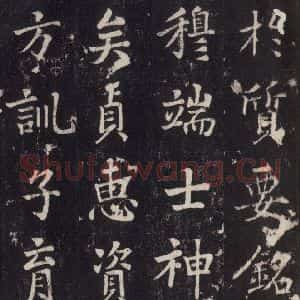 扵質要銘
穆端士神
矣貞惠資
方訓子育
Shufawang.CN